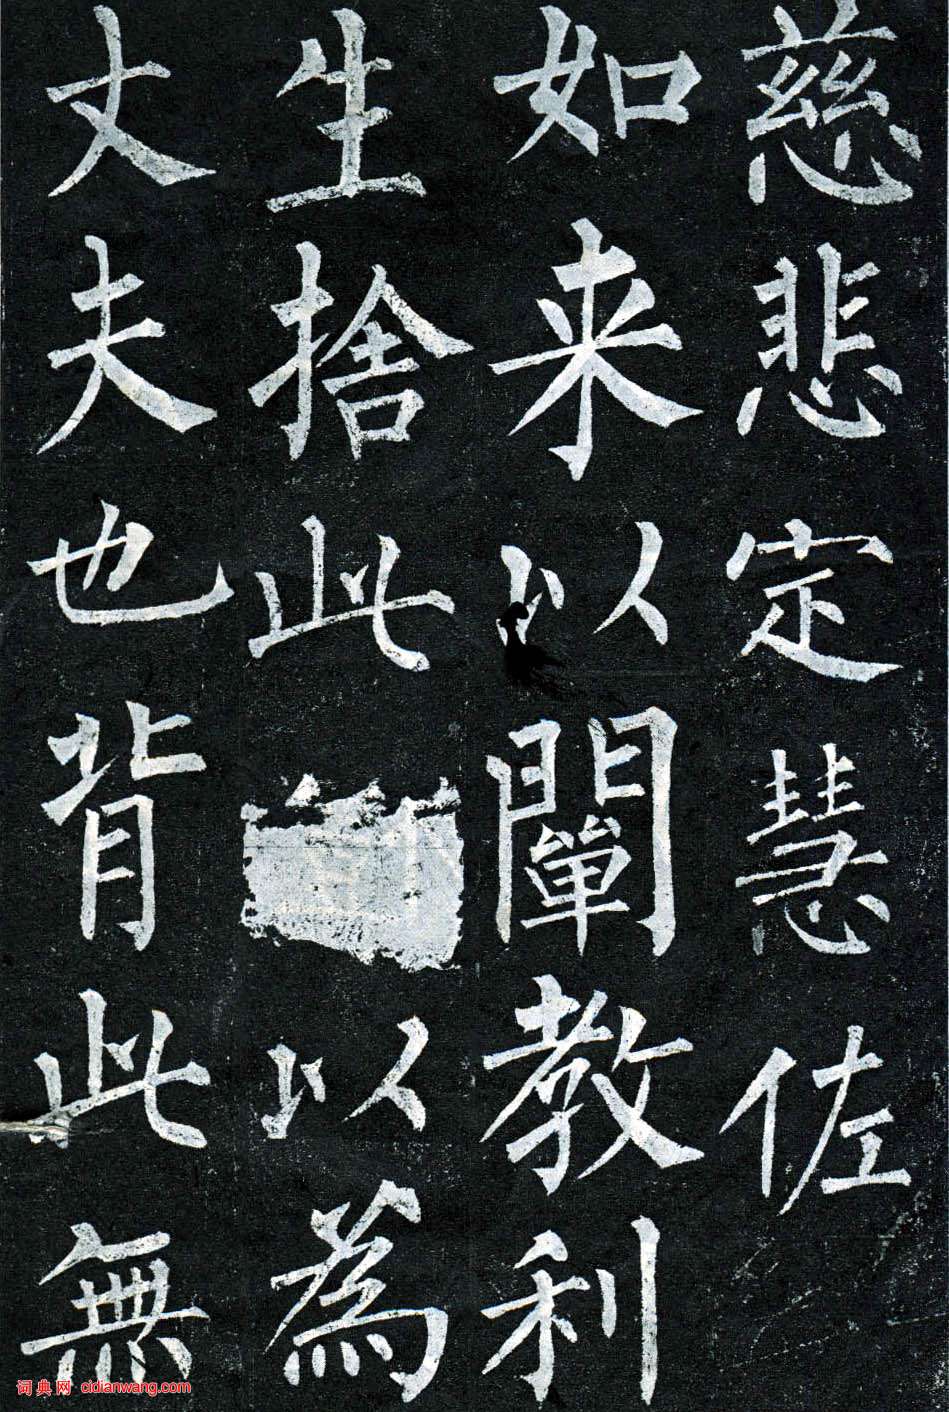 慈悲定慧佐
如来以闡教利
生捨此以為
丈夫也背此無
词典网 cidianwang.com